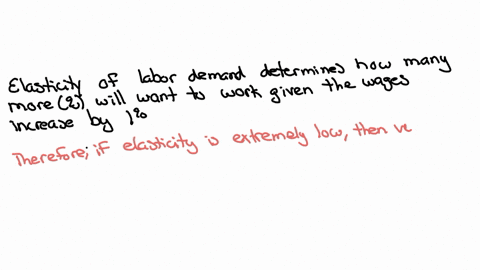 Elasticity of labor demand determines how many
more (%) will want to work given the wages
increase by 1%
Therefore; if elasticity is extremely low, then ve